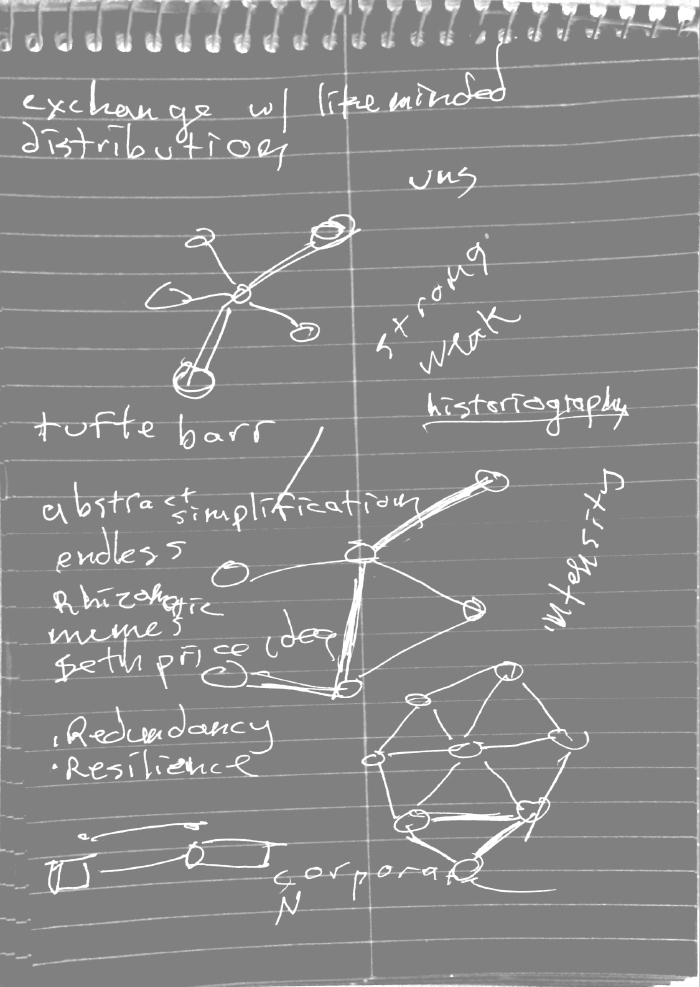 exchange w/ likeminded
distribution
strong
weak
historiography
tufte barr
abstract
simplification
endless
Rhizomatic
memes
seth price idea
intensity
. Redundancy
· Resilience
corporate
N